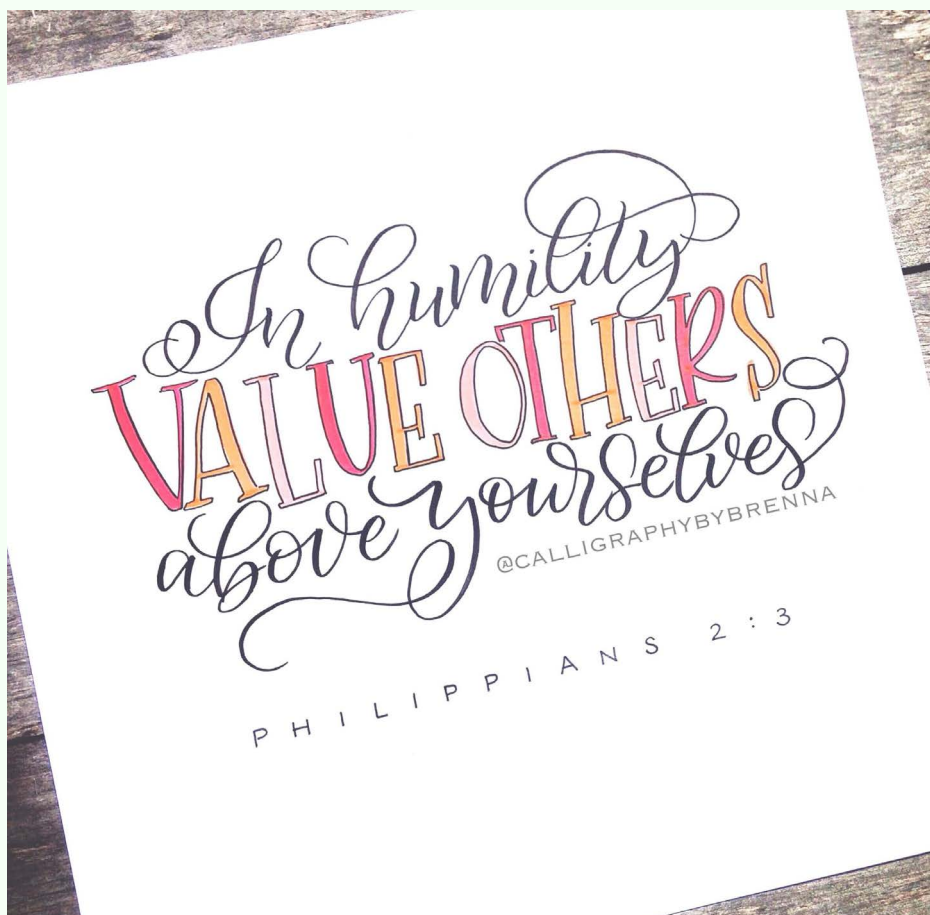 In humility
VALUE OTHERS
above yourselves
@CALLIGRAPHYBYBRENNA
PHILIPPIANS 2:3